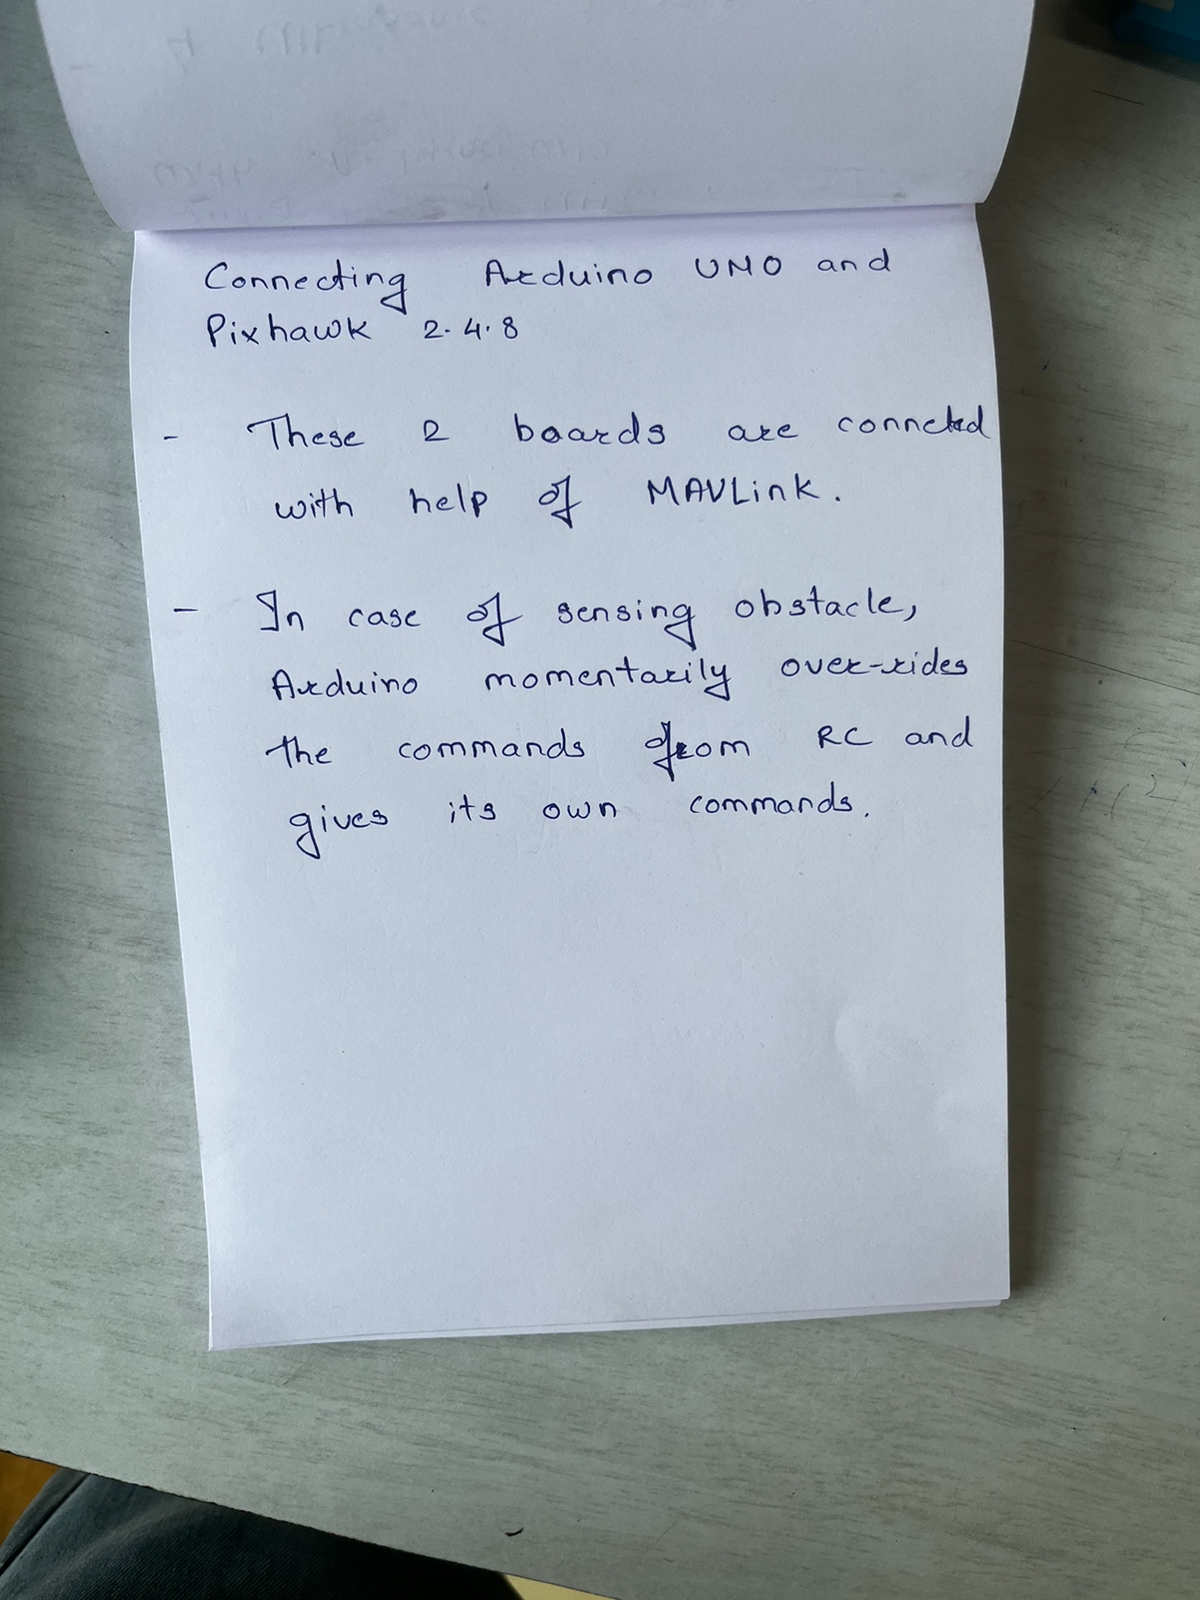 Connecting Arduino UNO and
Pixhawk 2.4.8
- These 2 boards are conncted
with help of MAVLink.
- In case of sensing obstacle,
Arduino momentarily over-rides
the commands from RC and
gives its own commands.